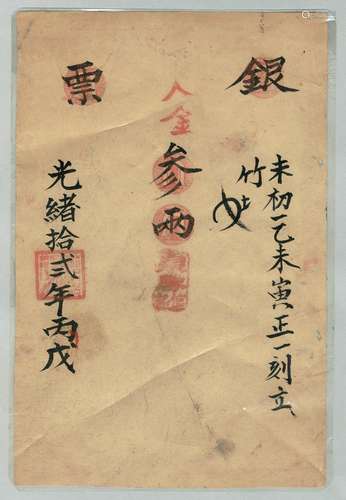 銀票
未初一乙未寅正一刻立
竹
入金
參兩
光緒拾弍年丙戊